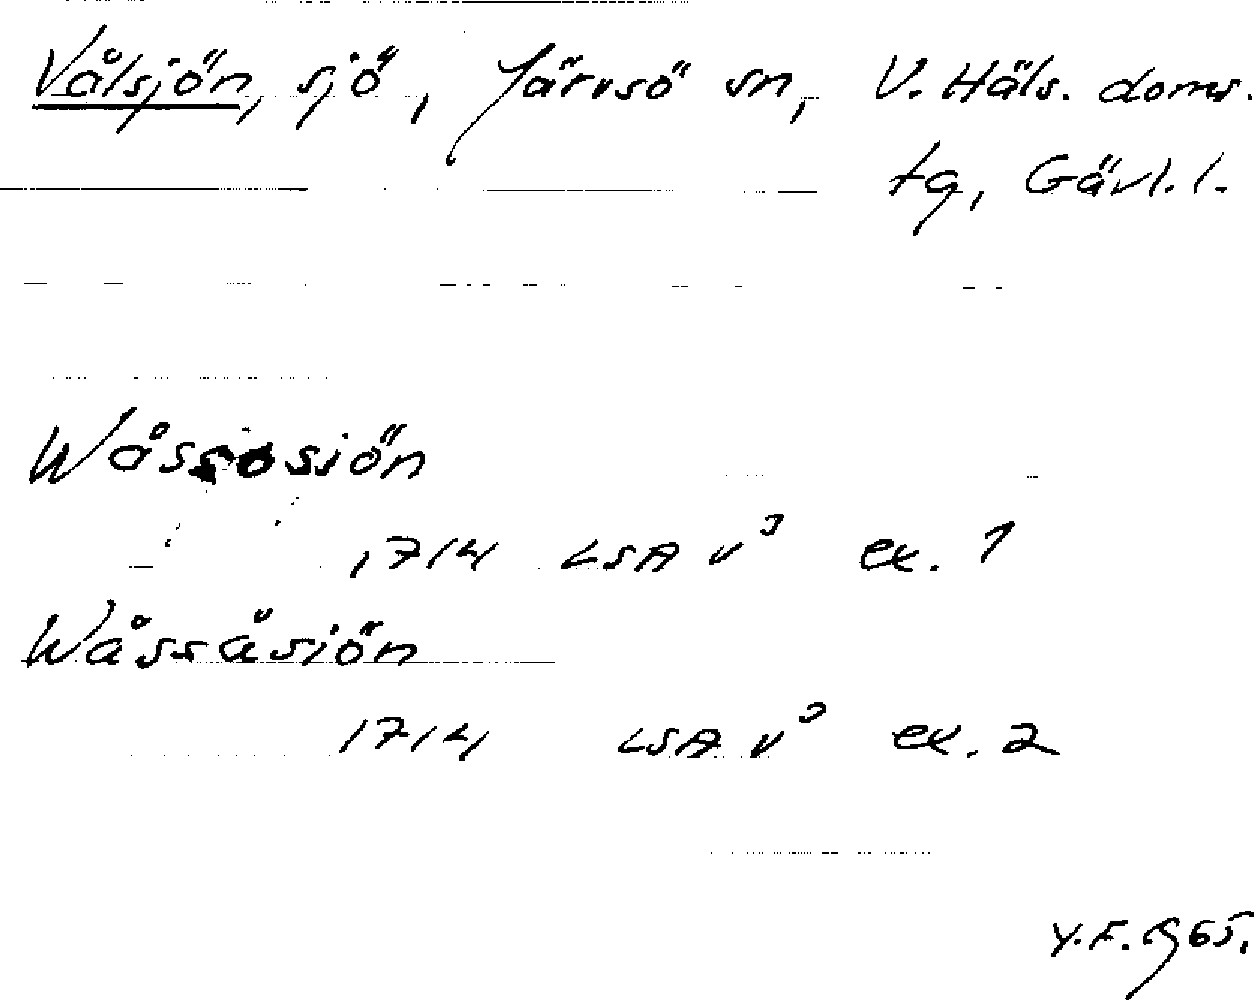 Vålsjön, sjö, Järvsö sn, V. Häls. doms.
tg, Gävl. l.
Wåssosiön
1714 LSA v³ ex. 1
Wåssåsiön
1714 LSA v³ ex. 2
Y.F. 1965.